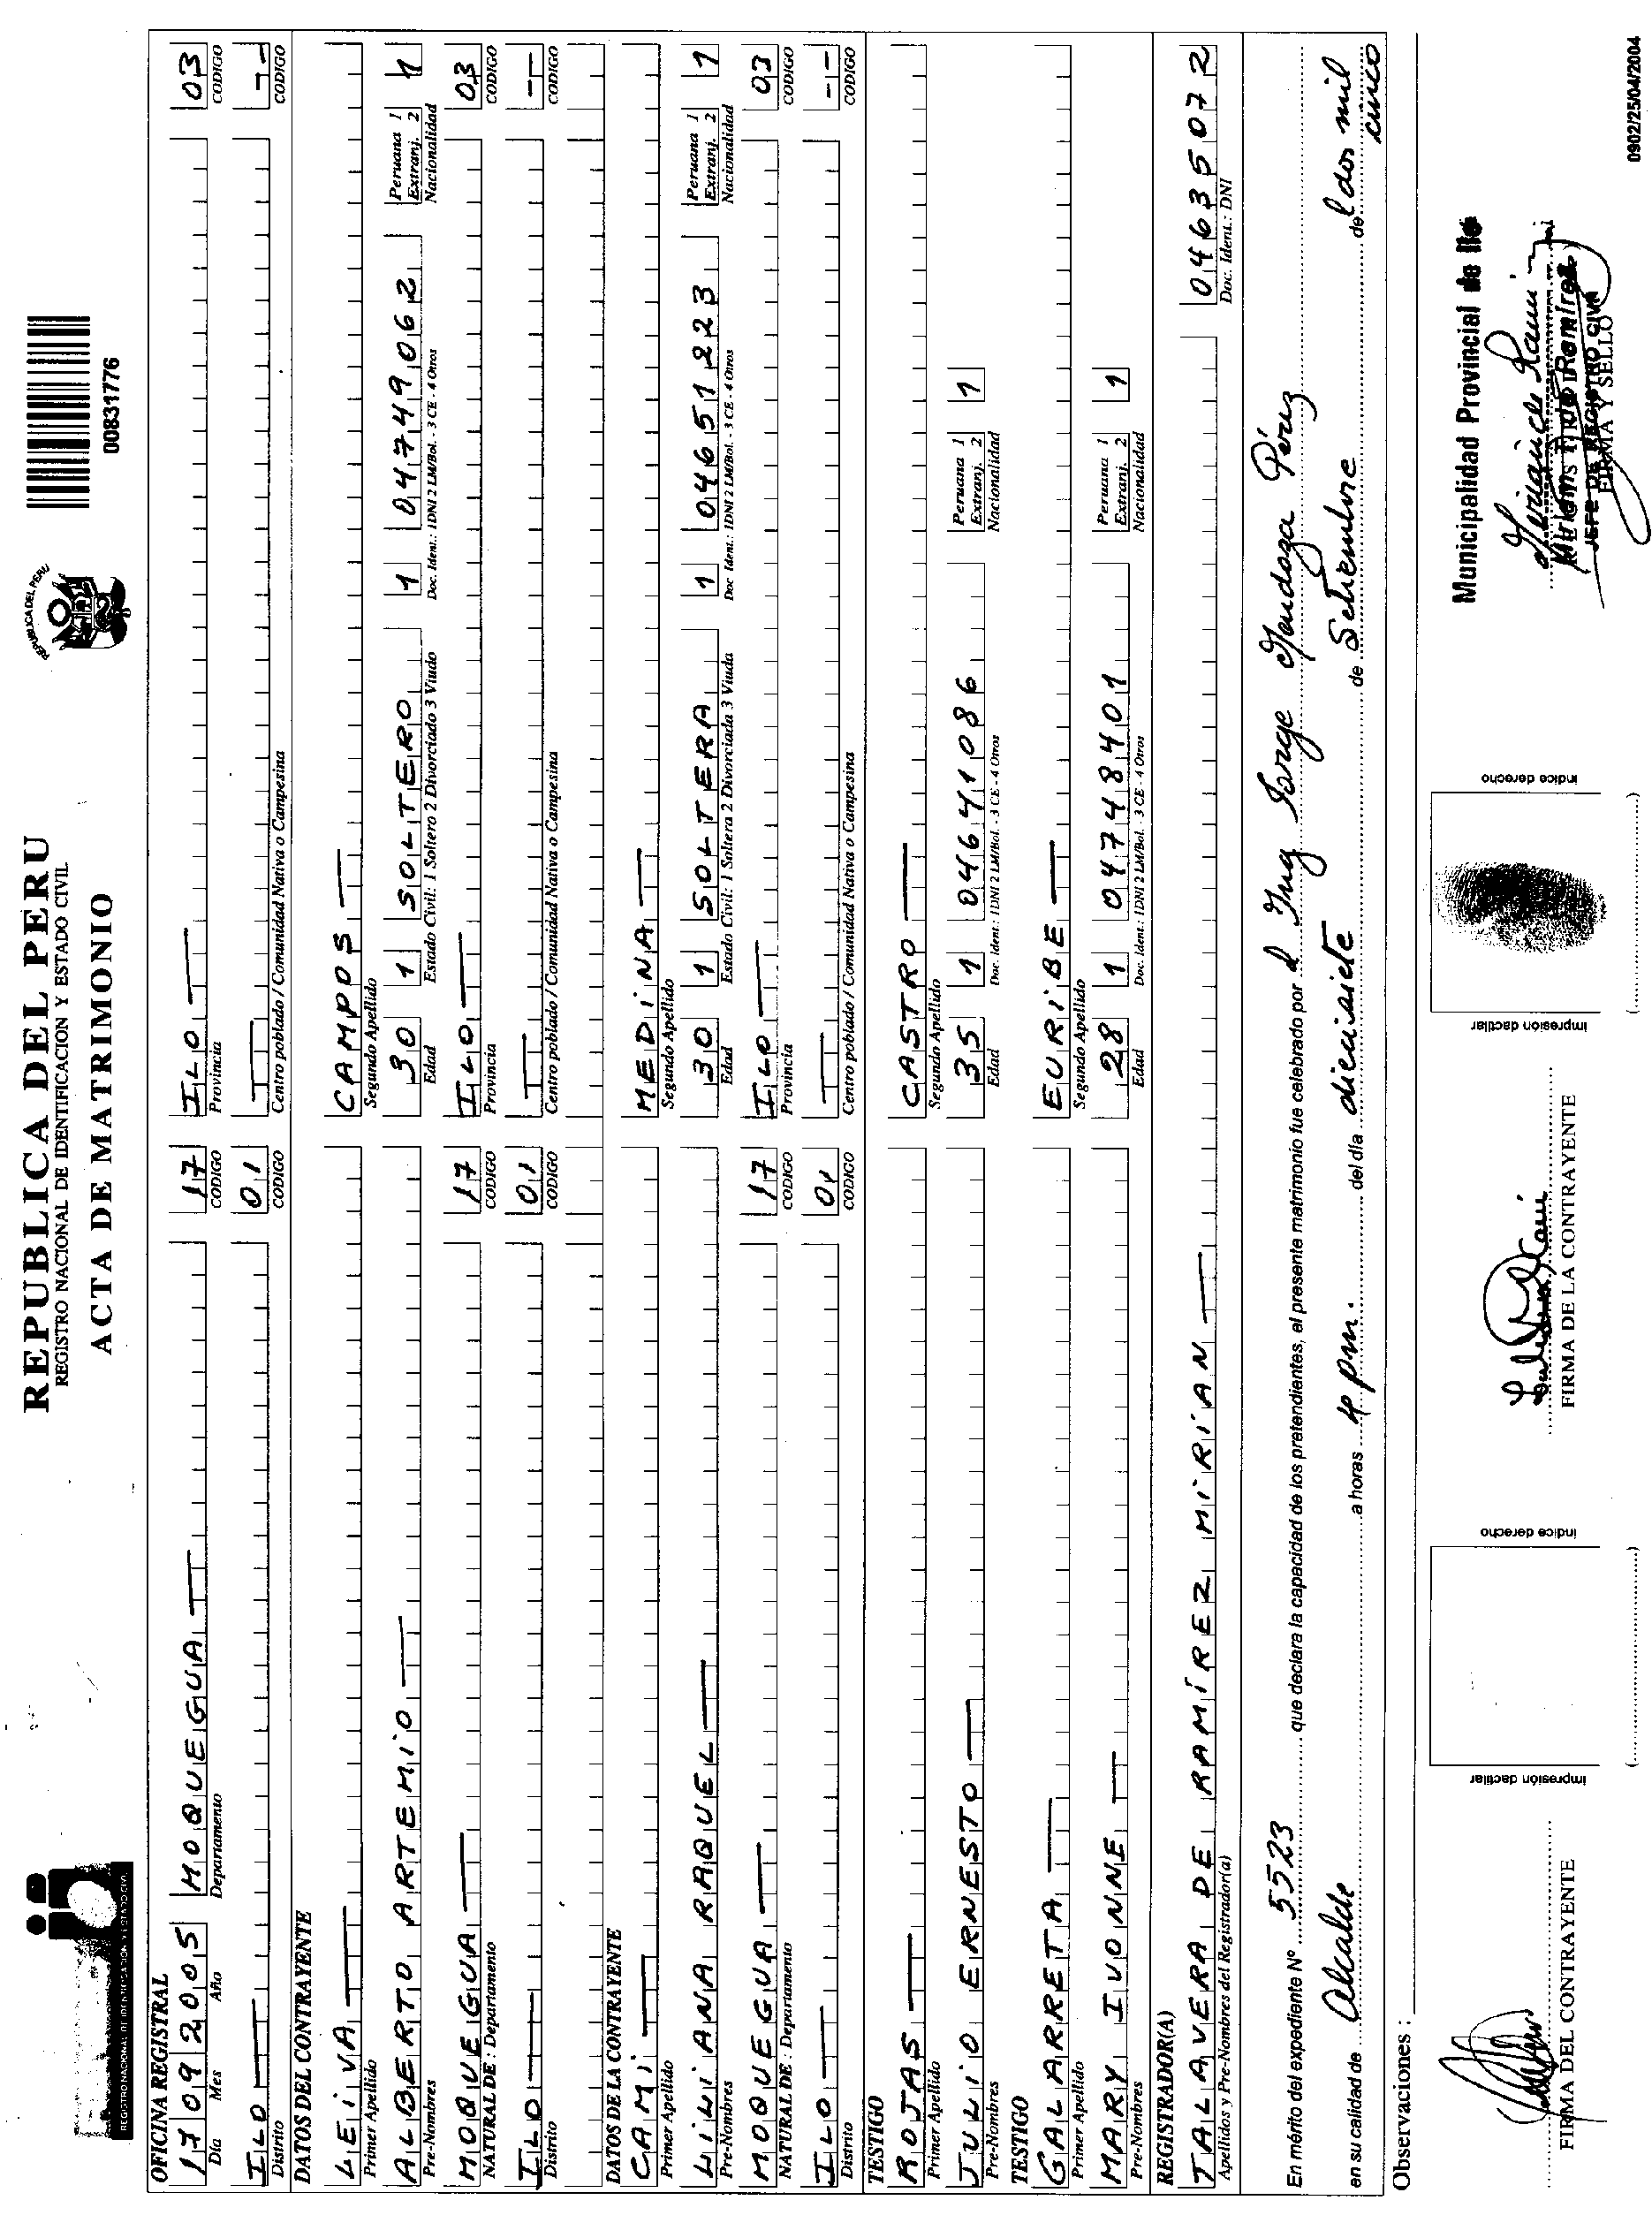 REPUBLICA DEL PERU
REGISTRO NACIONAL DE IDENTIFICACION Y ESTADO CIVIL
ACTA DE MATRIMONIO
REGISTRO NACIONAL DE IDENTIFICACION Y ESTADO CIVIL
REPUBLICA DEL PERU
00831776
OFICINA REGISTRAL
17 09 2005 MOQUEGUA 17 ILO 03
Día Mes Año Departamento CODIGO Provincia CODIGO
ILO 01 --
Distrito CODIGO Centro poblado / Comunidad Nativa o Campesina CODIGO
DATOS DEL CONTRAYENTE
LEIVA CAMPOS
Primer Apellido Segundo Apellido
ALBERTO ARTEMIO 30 1 SOLTERO 1 04749062 Peruana 1 Extranj. 2 1
Pre-Nombres Edad Estado Civil: 1 Soltero 2 Divorciado 3 Viudo Doc Ident.: 1DNI 2 LM/Bol. - 3 CE - 4 Otros Nacionalidad
MOQUEGUA 17 ILO 03
NATURAL DE : Departamento CODIGO Provincia CODIGO
ILO 01 --
Distrito CODIGO Centro poblado / Comunidad Nativa o Campesina CODIGO
DATOS DE LA CONTRAYENTE
CAMI MEDINA
Primer Apellido Segundo Apellido
LILIANA RAQUEL 30 1 SOLTERA 1 04651223 Peruana 1 Extranj. 2 1
Pre-Nombres Edad Estado Civil: 1 Soltera 2 Divorciada 3 Viuda Doc Ident.: 1DNI 2 LM/Bol. - 3 CE - 4 Otros Nacionalidad
MOQUEGUA 17 ILO 03
NATURAL DE : Departamento CODIGO Provincia CODIGO
ILO 01 --
Distrito CODIGO Centro poblado / Comunidad Nativa o Campesina CODIGO
TESTIGO
ROJAS CASTRO
Primer Apellido Segundo Apellido
JULIO ERNESTO 35 1 04641086 Peruana 1 Extranj. 2 1
Pre-Nombres Edad Doc. Ident.: 1DNI 2 LM/Bol. - 3 CE - 4 Otros Nacionalidad
TESTIGO
GALARRETA EURIBE
Primer Apellido Segundo Apellido
MARY IVONNE 28 1 04748401 Peruana 1 Extranj. 2 1
Pre-Nombres Edad Doc. Ident.: 1DNI 2 LM/Bol. - 3 CE - 4 Otros Nacionalidad
REGISTRADOR(A)
TALAVERA DE RAMÍREZ MIRIAN 04635072
Apellidos y Pre-Nombres del Registrador(a) Doc. Ident.: DNI
En mérito del expediente Nº 5523 que declara la capacidad de los pretendientes, el presente matrimonio fue celebrado por el Ing Jorge Mendoza Pérez
en su calidad de Alcalde a horas 4 pm. del día diecisiete de Setiembre de l dos mil
cinco
Observaciones :
impresión dactilar
índice derecho
impresión dactilar
índice derecho
Municipalidad Provincial de Ilo
JEFE DE REGISTRO CIVIL
FIRMA DEL CONTRAYENTE
FIRMA DE LA CONTRAYENTE
FIRMA Y SELLO
0902/25/04/2004